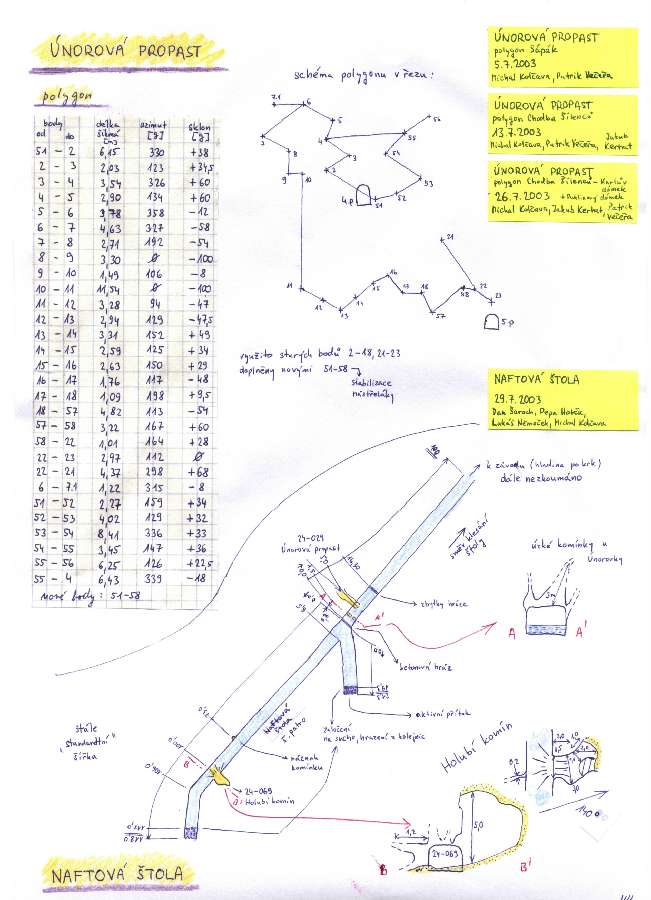 ÚNOROVÁ PROPAST
polygon
body
od do
délka šikmá [m]
azimut [g]
sklon [g]
51 - 2 6,15 330 +38
2 - 3 2,03 123 +34,5
3 - 4 3,54 326 +60
4 - 5 2,90 134 +60
5 - 6 3,78 358 -12
6 - 7 4,63 327 -58
7 - 8 2,71 192 -54
8 - 9 3,30 0 -100
9 - 10 1,49 106 -8
10 - 11 11,54 0 -100
11 - 12 3,28 94 -47
12 - 13 2,94 129 -47,5
13 - 14 3,31 152 +49
14 - 15 2,59 125 +34
15 - 16 2,63 150 +29
16 - 17 1,76 117 -48
17 - 18 1,09 198 +9,5
18 - 57 4,82 113 -54
57 - 58 3,22 167 +60
58 - 22 1,01 164 +28
22 - 23 2,97 112 0
22 - 21 4,37 298 +68
6 - 7.1 1,22 315 -8
51 - 52 2,27 159 +34
52 - 53 4,02 129 +32
53 - 54 8,41 336 +33
54 - 55 3,45 147 +36
55 - 56 6,25 126 +22,5
55 - 4 6,43 339 -18
nové body: 51-58
schéma polygonu v řezu:
7.1
6
5
56
4
55
8
3
54
9
10
2
53
4.p
51
52
21
16
15
11
12
14
17
18
22
23
13
57
5.p
využito starých bodů 2-18, 21-23
doplněny novými 51-58
stabilizace
nástřeláky
ÚNOROVÁ PROPAST
polygon Sápák
5.7.2003
Michal Kolčava, Patrik Večeřa
ÚNOROVÁ PROPAST
polygon Chodba Šílenců
13.7.2003
Jakub
Michal Kolčava, Patrik Večeřa, Kertnat
ÚNOROVÁ PROPAST
polygon Chodba Šílenců - Karlův
dómek
26.7.2003
Michal Kolčava, Jakub Kertnat, Patrik
Večeřa
NAFTOVÁ ŠTOLA
29.7.2003
Lukáš Němeček, Michal Kolčava
k závodu (hladina pokrk)
dále nezkoumáno
směr klesání
štoly
24-029
Únorová propast
zbytky hráze
betonová hráz
A'
úzké komínky u
Únorovky
A
A'
aktivní přítok
založení
na sucho, hrazení z kolejnic
Naftová
štola
5. patro
stále
"standardní"
šířka
náznak
komínku
24-069
Holubí komín
B
Holubí komín
0,2
1,2
5,0
24-069
B
B'
NAFTOVÁ ŠTOLA